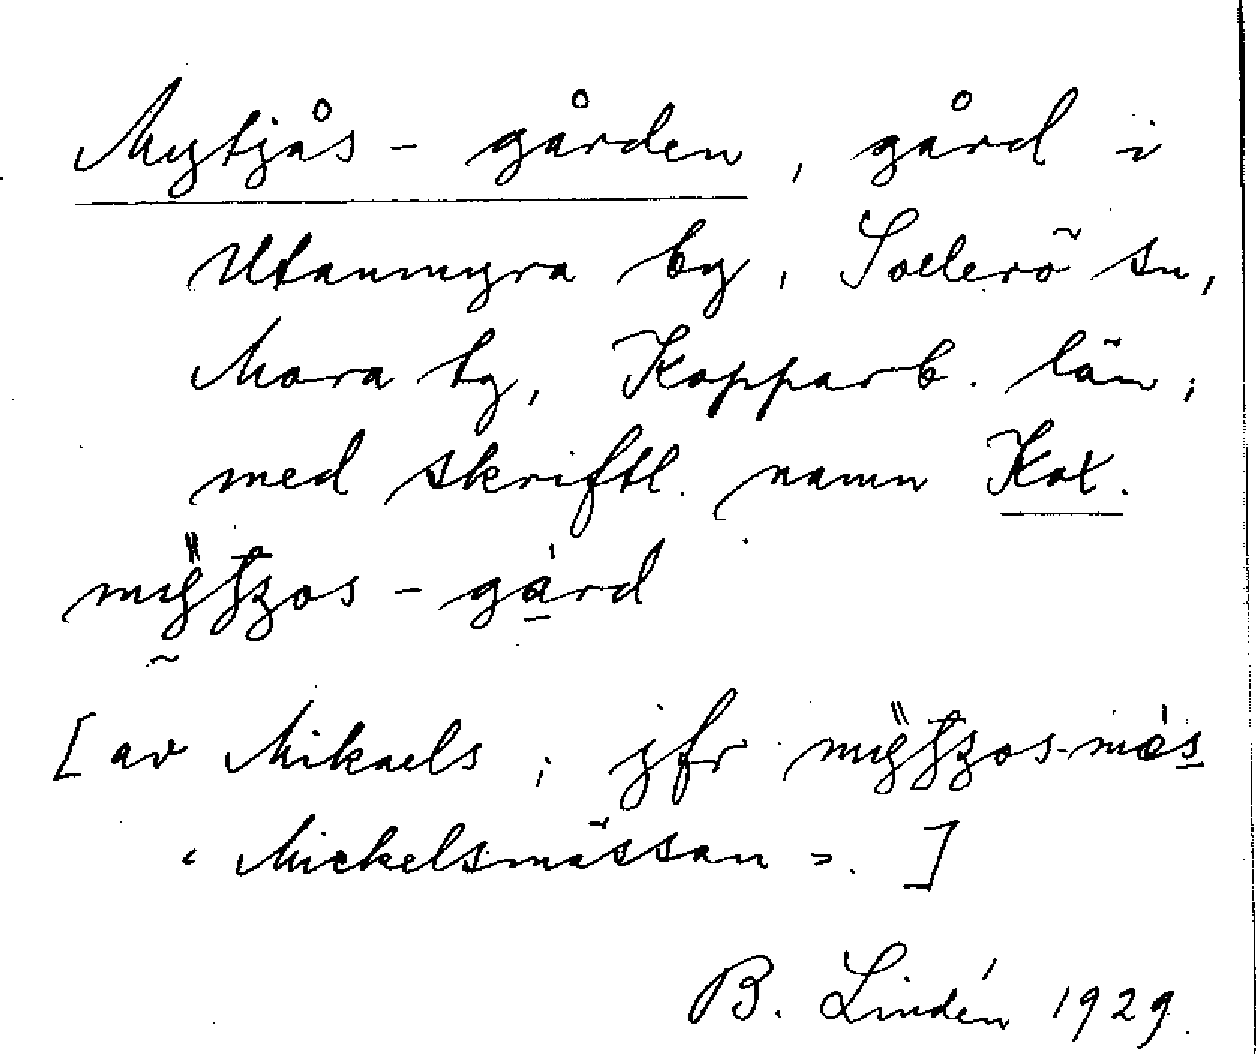 Mytjås-gården, gård i
Utanmyra by, Sollerö sn,
Mora tg, Kopparb. län,
med skriftl. namn Kat.
-gård
[av Mikaels; jfr
‹Mickelsmässan›.]
B. Lindén 1929.